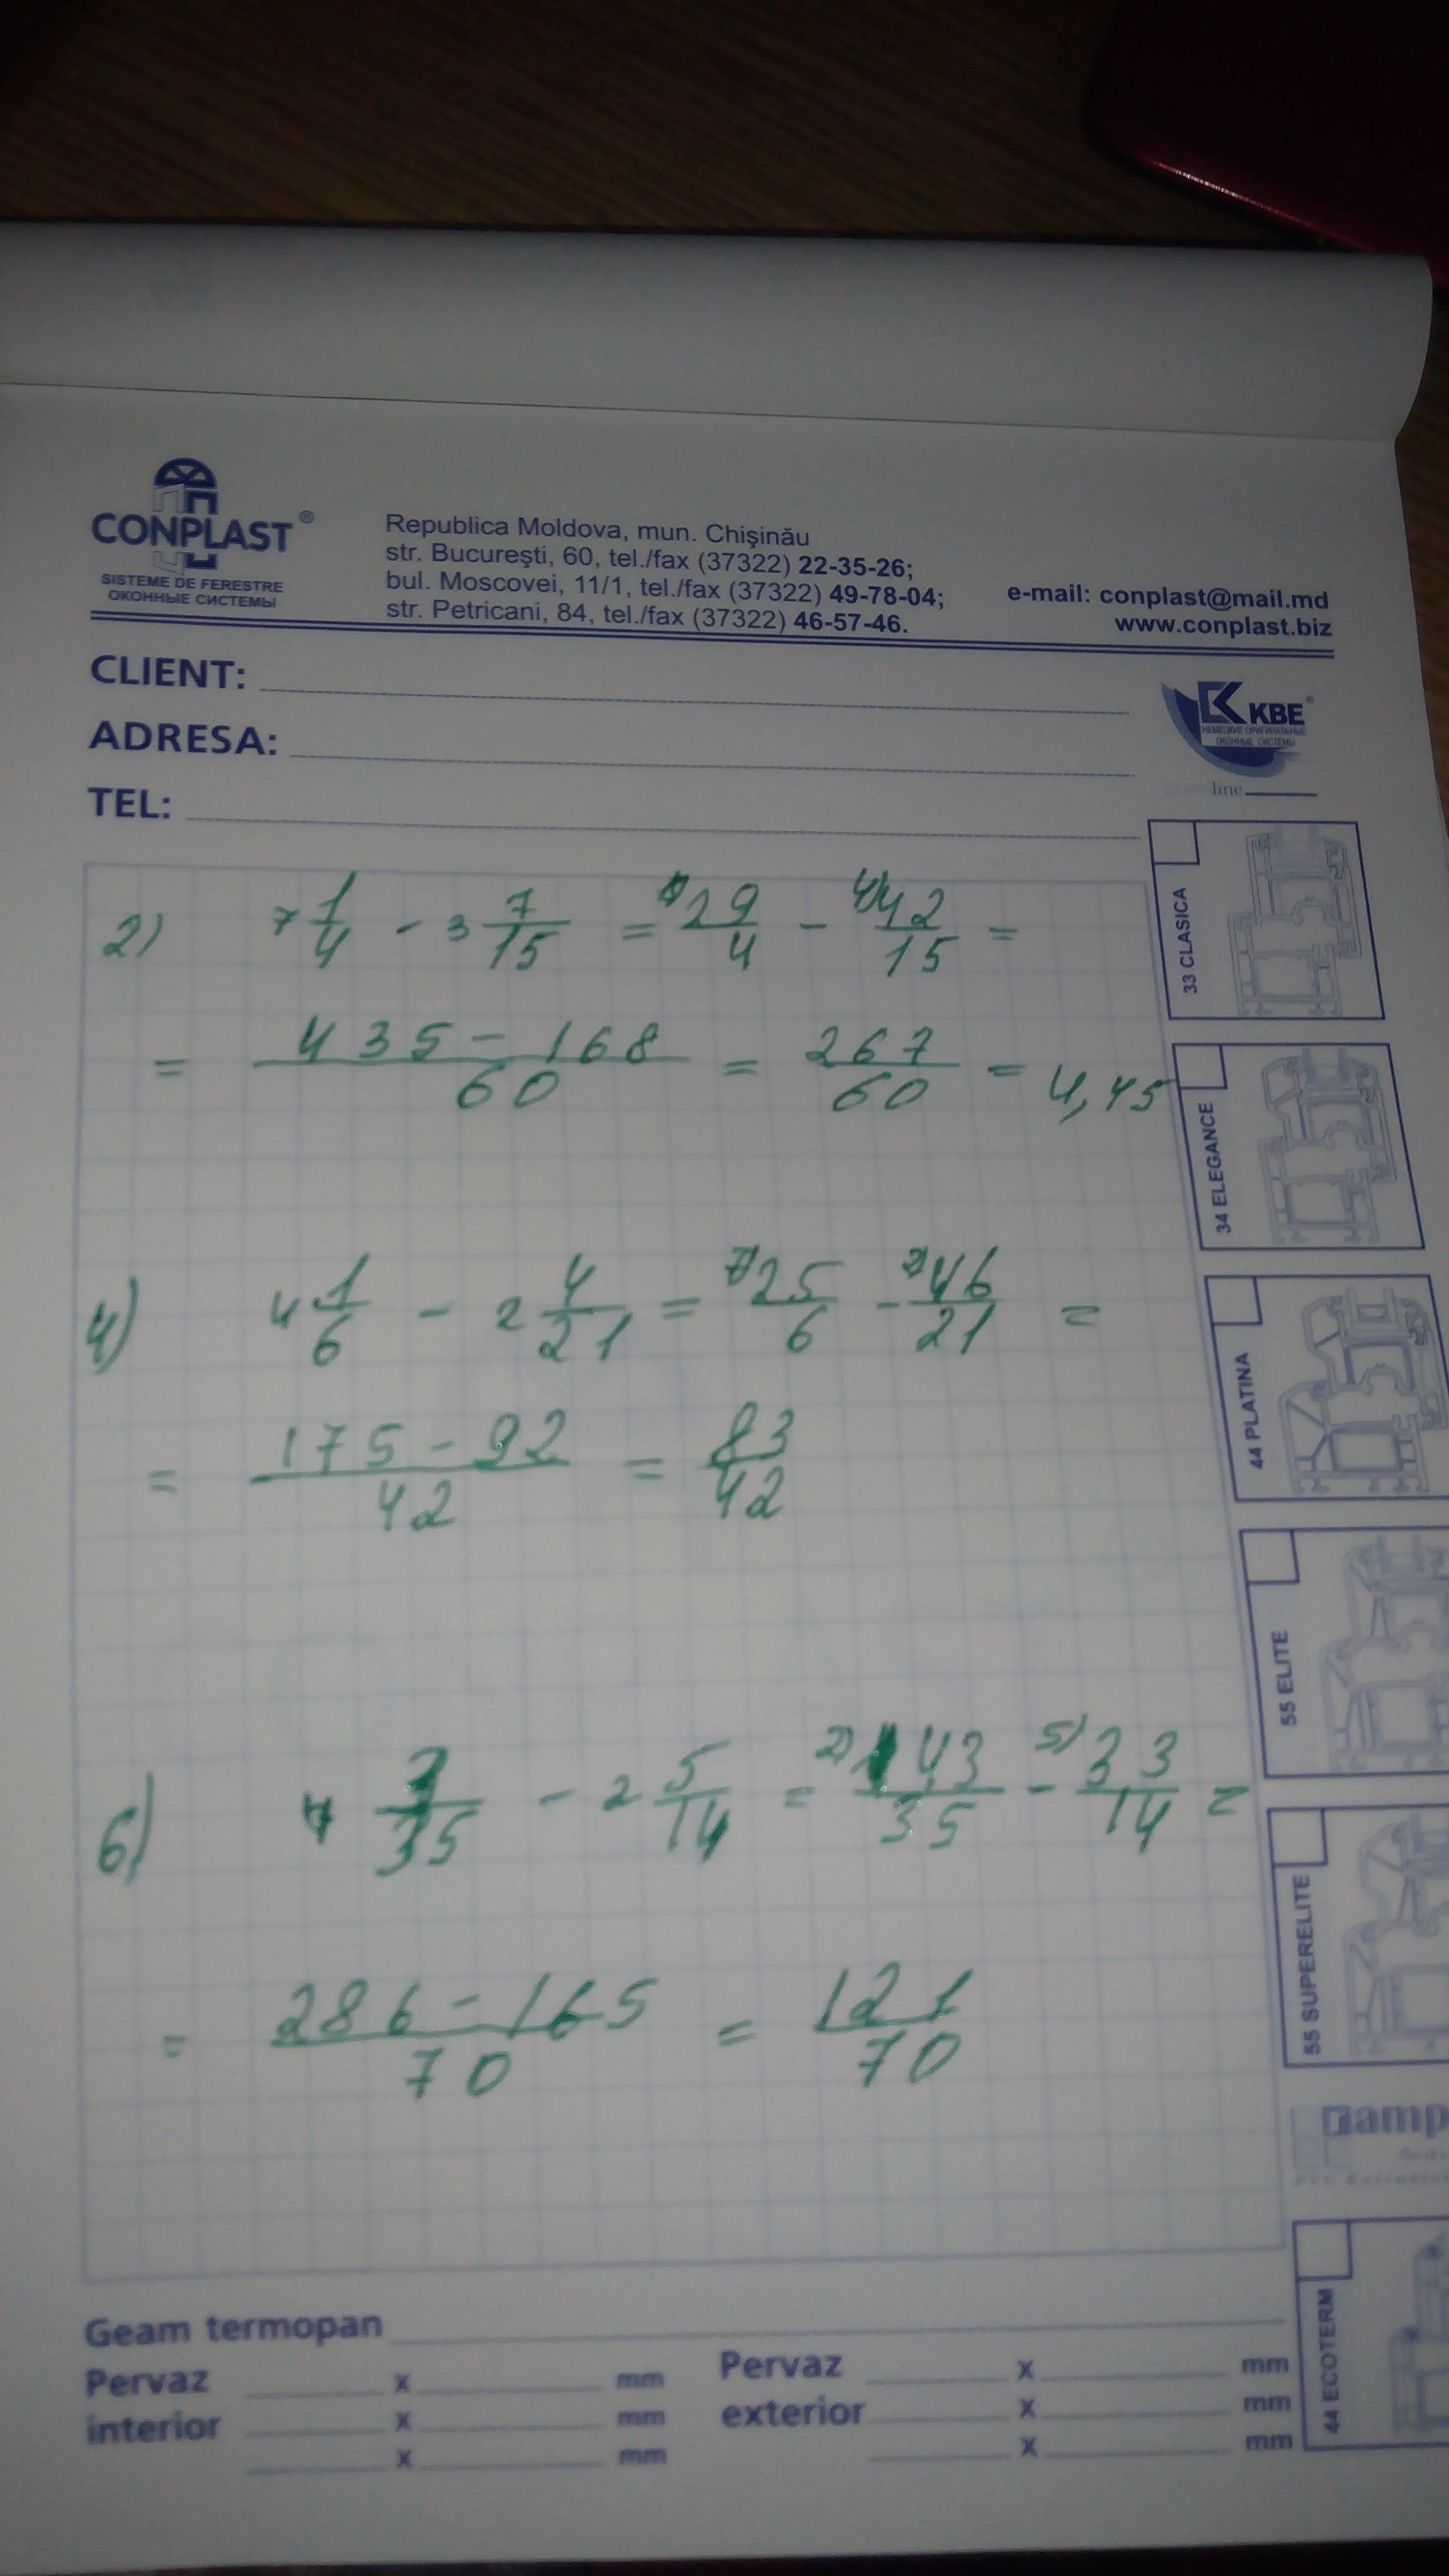 CONPLAST®
SISTEME DE FERESTRE
ОКОННЫЕ СИСТЕМЫ
Republica Moldova, mun. Chişinău
str. Bucureşti, 60, tel./fax (37322) 22-35-26;
bul. Moscovei, 11/1, tel./fax (37322) 49-78-04;
str. Petricani, 84, tel./fax (37322) 46-57-46.
e-mail: conplast@mail.md
www.conplast.biz
CLIENT:
ADRESA:
TEL:
KBE®
НЕМЕЦКИЕ ОРИГИНАЛЬНЫЕ
ОКОННЫЕ СИСТЕМЫ
line
2) 7 1/4 - 3 7/15 = 29/4 - 4) 42/15 =
= 435 - 168/60 = 267/60 = 4,45
4) 4 1/6 - 2 4/21 = 7) 25/6 - 2) 46/21 =
= 175 - 92/42 = 83/42
6) 4 3/35 - 2 5/14 = 2) 143/35 - 5) 33/14 =
= 286 - 165/70 = 121/70
33 CLASICA
34 ELEGANCE
44 PLATINA
55 ELITE
55 SUPERELITE
44 ECOTERM
Geam termopan
Pervaz interior x mm
x mm
x mm
Pervaz exterior x mm
x mm
x mm